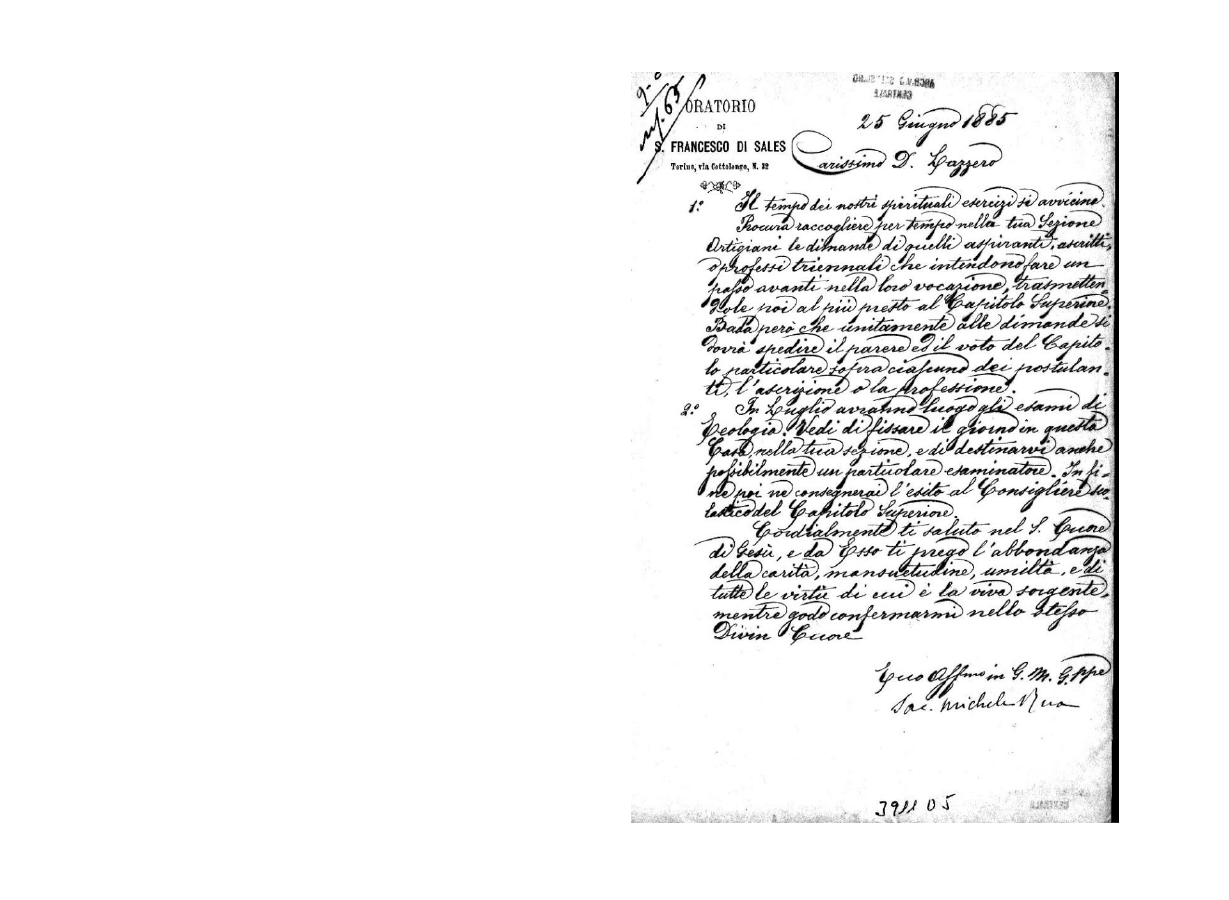 9.0
inf. 65
ARCHIVIO SALESIANO
CENTRALE
ORATORIO
DI
S. FRANCESCO DI SALES
Torino, via Cottolengo, N. 32
25 Giugno 1885
Carissimo D. Lazzero
1.° Il tempo dei nostri spirituali esercizi si avvicina.
Procura raccogliere per tempo nella tua Sezione
Artigiani le dimande di quelli aspiranti, ascritti,
o professi triennali che intendono fare un
passo avanti nella loro vocazione, trasmetten-
dole poi al più presto al Capitolo Superiore.
Bada però che unitamente alle dimande si
dovrà spedire il parere ed il voto del Capito-
lo particolare sopra ciascuno dei postulan-
ti, l'ascrizione o la professione.
2.° In Luglio avranno luogo gli esami di
Teologia. Vedi di fissare il giorno in questa
Casa, nella tua sezione, e di destinarvi anche
possibilmente un particolare esaminatore. In fi-
ne poi ne consegnerai l'esito al Consigliere sco-
lastico del Capitolo Superiore.
Cordialmente ti saluto nel S. Cuore
di Gesù, e da Esso ti prego l'abbondanza
della carità, mansuetudine, umiltà, e di
tutte le virtù di cui è la viva sorgente,
mentre godo confermarmi nello stesso
Divin Cuore
Tuo Aff.mo in G. M. G.ppe
Sac. Michele Rua
3911 D5
CENTRALE